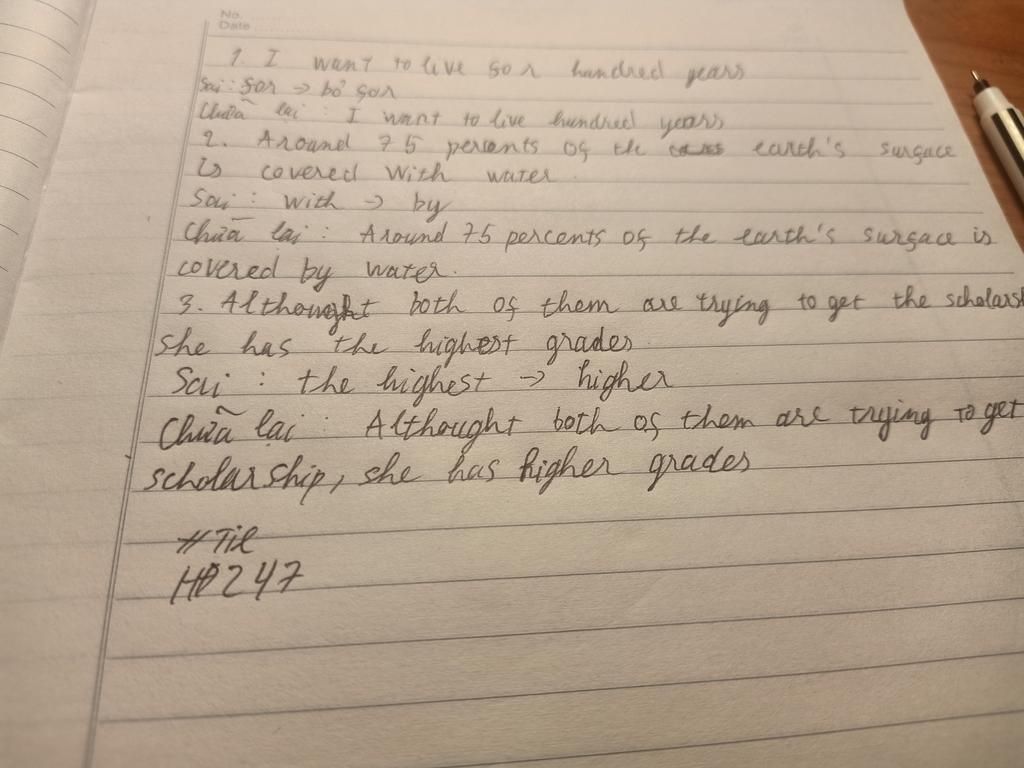 No.
Date
1. I want to live for hundred years
Sai: for → bỏ for
Chữa lại: I want to live hundred years
2. Around 75 percents of the earth's surface
is covered with water.
Sai: with → by
Chữa lại: Around 75 percents of the earth's surface is
covered by water.
3. Althought both of them are trying to get the scholarsh
she has the highest grades
Sai: the highest → higher
Chữa lại: Althought both of them are trying to get
scholarship, she has higher grades
#Til
HP247